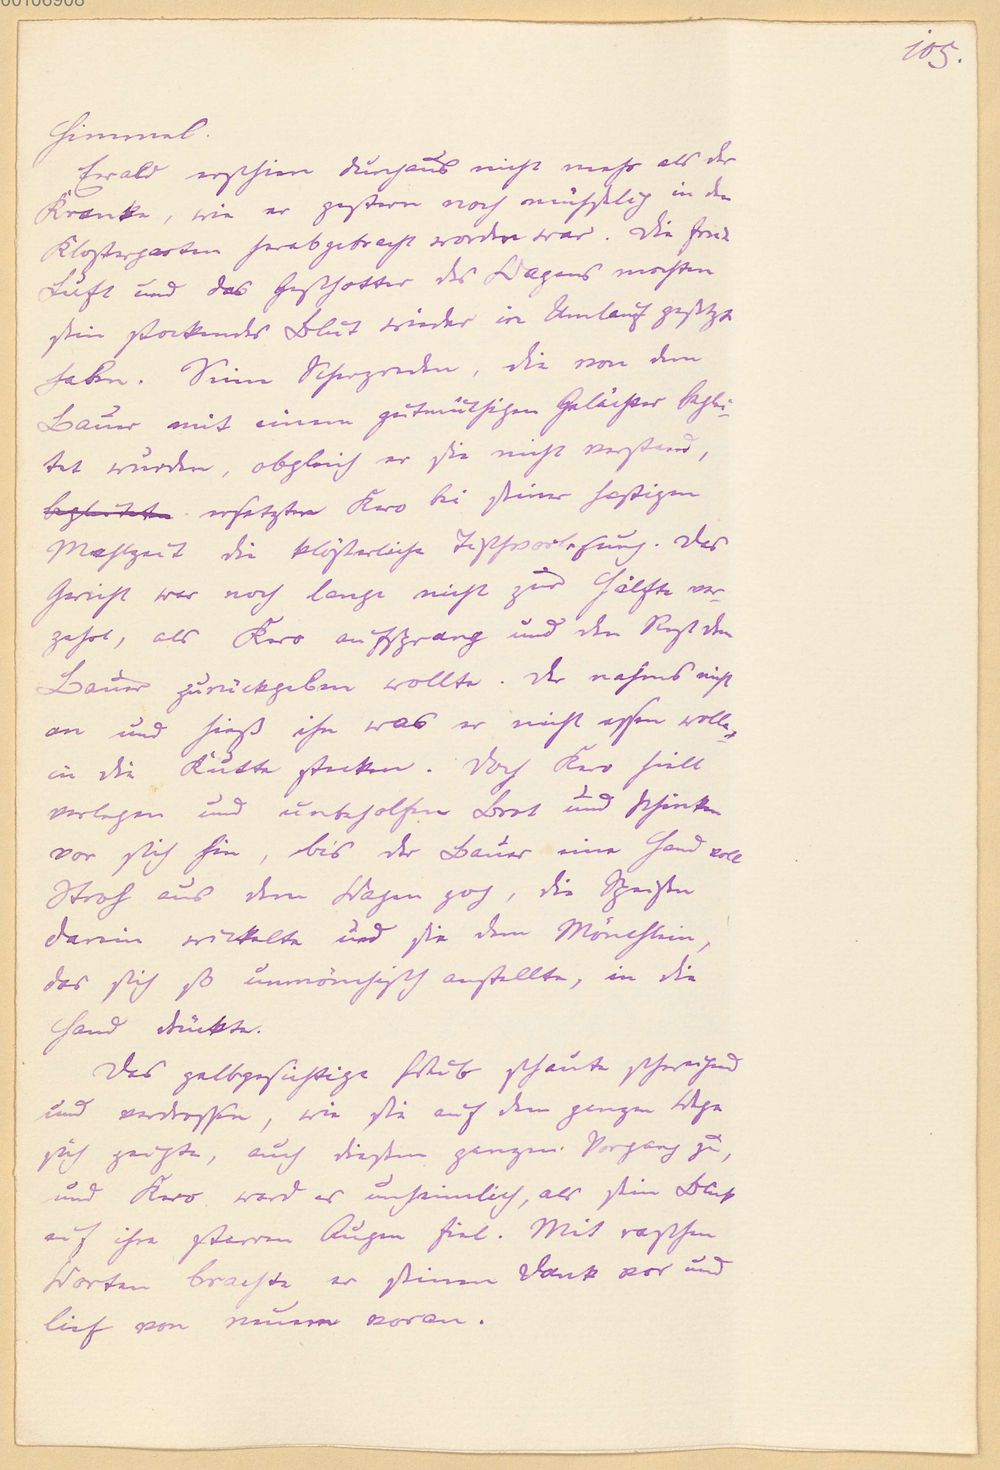 00106908
105.
Himmel.
Ewald erschien durchaus nicht mehr als der
Kranke, wie er gestern noch mühselig in den
Klostergarten herabgebracht worden war. Die freie
Luft und das Geschotter des Wagens mochten
sein stockendes Blut wieder in Umlauf gesetzt
haben. Seine Scherzreden, die von dem
Bauer mit einem gutmüthigen Gelächter beglei-
tet wurden, obgleich er sie nicht verstand,
begleitete ersetzten Kero bei seiner hastigen
Mahlzeit die klösterliche Tischvorlesung. Das
Gericht war noch lange nicht zur Hälfte ver-
zehrt, als Kero aufsprang und den Rest dem
Bauer zurückgeben wollte. Der nahms nicht
an und hieß ihn was er nicht essen wolle,
in die Kutte stecken. Doch Kero hielt
verlegen und unbeholfen Brot und Schinken
vor sich hin, bis der Bauer eine Hand voll
Stroh aus dem Wagen zog, die Speisen
darein wickelte und sie dem Mönchlein,
das sich so unmönchisch anstellte, in die
Hand drückte.
Das gelbgesichtige Weib schaute schweigend
und verdrossen, wie sie auf dem ganzen Wege
sich zeigte, auch diesem ganzen Vorgang zu,
und Kero ward es unheimlich, als sein Blick
auf ihre starren Augen fiel. Mit raschen
Worten brachte er seinen Dank vor und
lief von neuem voran.